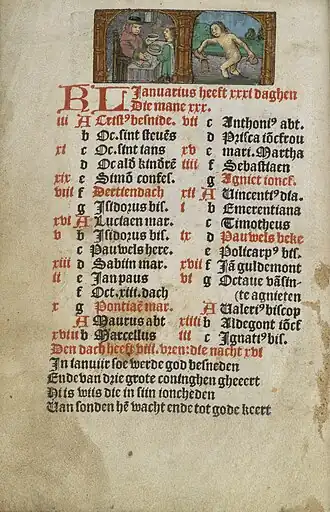 KL Januarius heeft xxxi daghen
Die mane xxx.
iii A Cristꝰ besnide.
b Oc. sint steuēs
xi c Oc. sint ians
d Oc ald kindrē
xix e Simō confes.
viii f Dertiendach
g Jsidorus bis.
xvi A Luciaen mar.
v b Jsidorus bis.
c Pauwels here.
xiii d Sabijn mar.
ii e Jan paus
f Oct. xiii. dach
x g Pontiaē mar.
A Maurus abt
xviii b Marcellus
vii c Anthoniꝰ abt.
d Prisca iōcfrou
xv e mari. Martha
iiii f Sebastiaen
g Agniet ioncf.
xii A Vincentiꝰ dia.
i b Emerentiana
c Timotheus
ix d Pauwels beke
e Policarpꝰ bis.
xvii f Jā guldemont
vi g Octaue vā sin-
te agnieten
A Valeriꝰ biscop
xiiii b Aldegont iōcf
iii c Jgnatiꝰ bis.
Den dach heeft viii. vren: die nacht xvi
Jn ianuir soe werde god besneden
Ende van drie grote coninghen gheeert
Hi is wiis die in siin ioncheden
Van sonden hē wacht ende tot gode keert